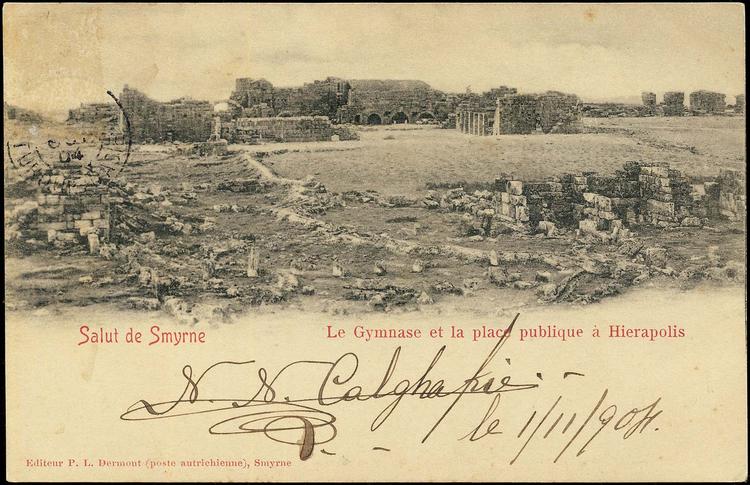 Salut de Smyrne
Le Gymnase et la place publique à Hierapolis
N. N. Calghapié.
le 1/11/904.
Editeur P. L. Dermont (poste autrichienne), Smyrne